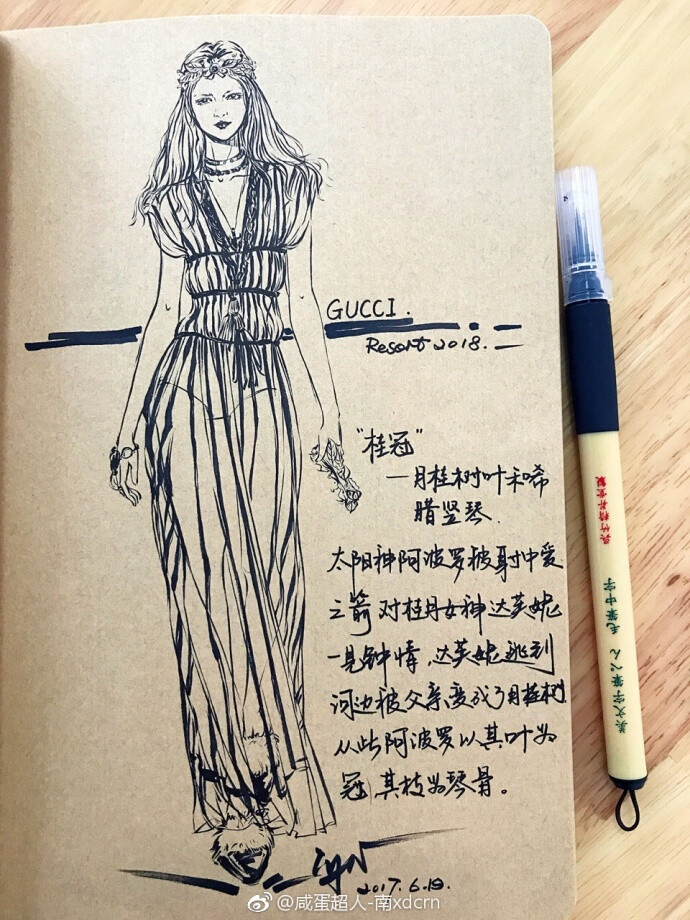 GUCCI.
Resort 2018.
“桂冠”
—月桂树叶和唏
腊竖琴.
太阳神阿波罗被射中爱
之箭对桂月女神达芙妮
一见钟情,达芙妮逃到
河边被父亲变成了月桂树.
从此阿波罗以其叶为
冠,其枝为琴骨。
2017.6.19.
呉竹精昇堂製
美文字筆ぺん 毛筆中字
@咸蛋超人-南xdcrn